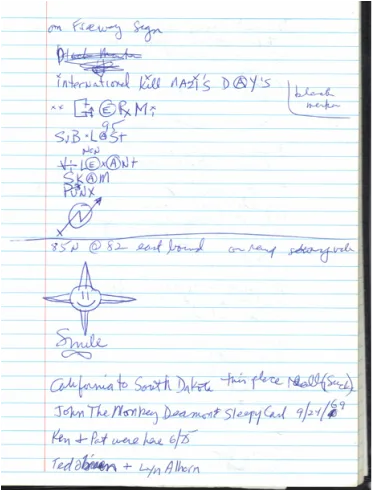 on Freeway Sign
international Kill NAZi'S DAY'S
black
marker
GERMi
95
SUB-LOST
NON
Vi-LExANt
SKAM
PUNX
N
85N @ 82 east bound on ramp
Smile
California to South Dakota this place Really (Suck)
John The Monkey Deamon & Sleepy Carl 9/21/69
Ken & Pat were here 6/75
Ted + Lyn Alhorn